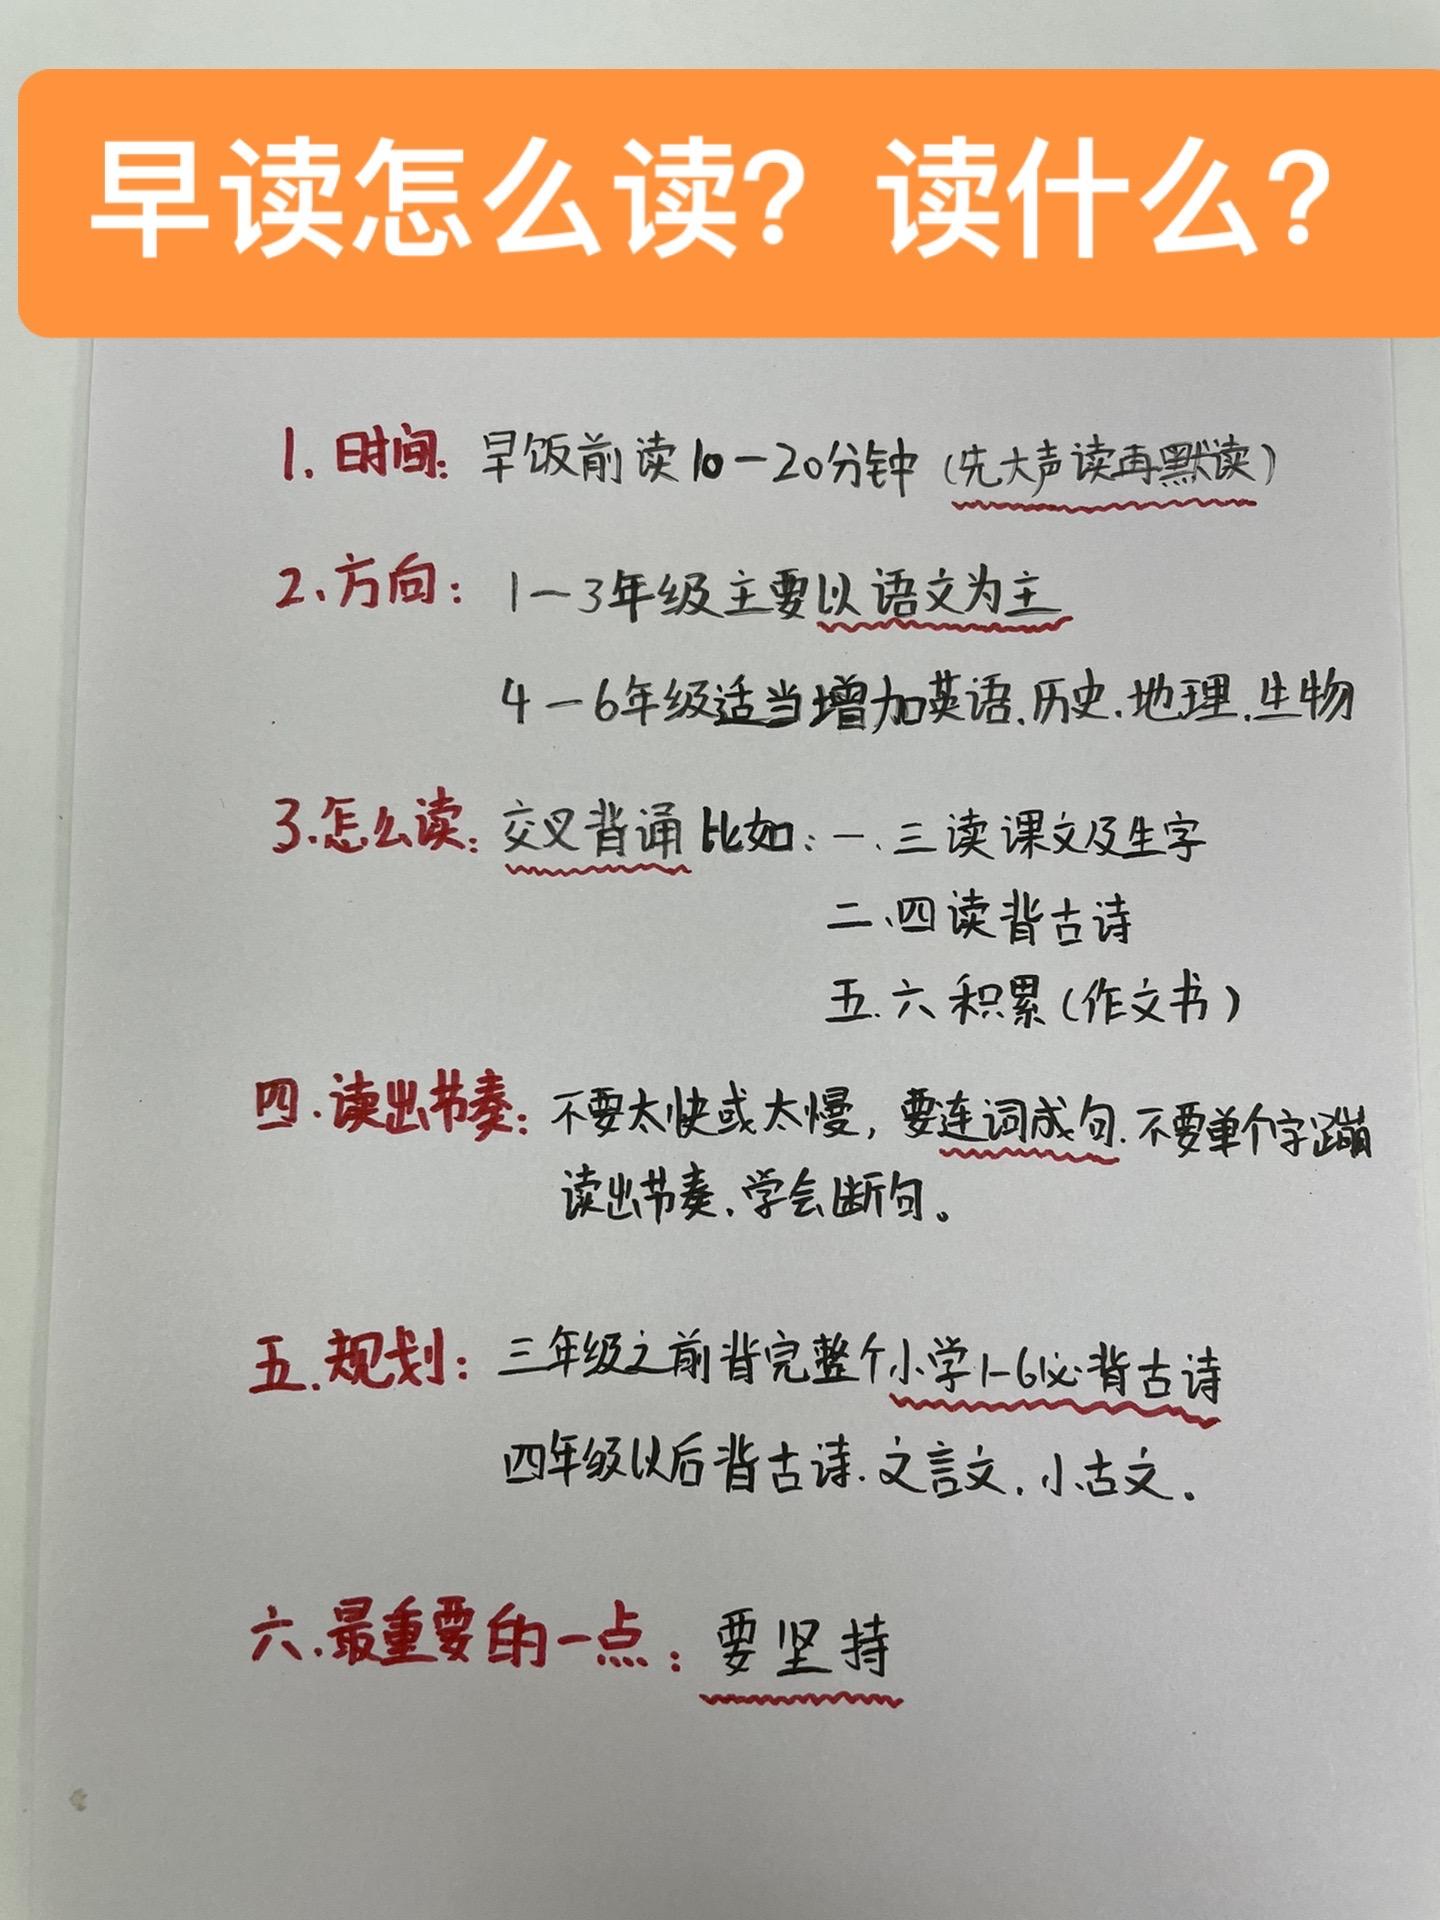 早读怎么读？读什么？
1.时间：早饭前读10-20分钟（先大声读再默读）
2、方向：1-3年级主要以语文为主
4-6年级适当增加英语、历史、地理、生物
3.怎么读：交叉背诵 比如：一、三读课文及生字
二、四读背古诗
五.六积累（作文书）
四.读出节奏：不要太快或太慢，要连词成句.不要单个字蹦
读出节奏.学会断句。
五.规划：三年级之前背完整个小学1-6必背古诗
四年级以后背古诗.文言文.小古文.
六.最重要的一点：要坚持